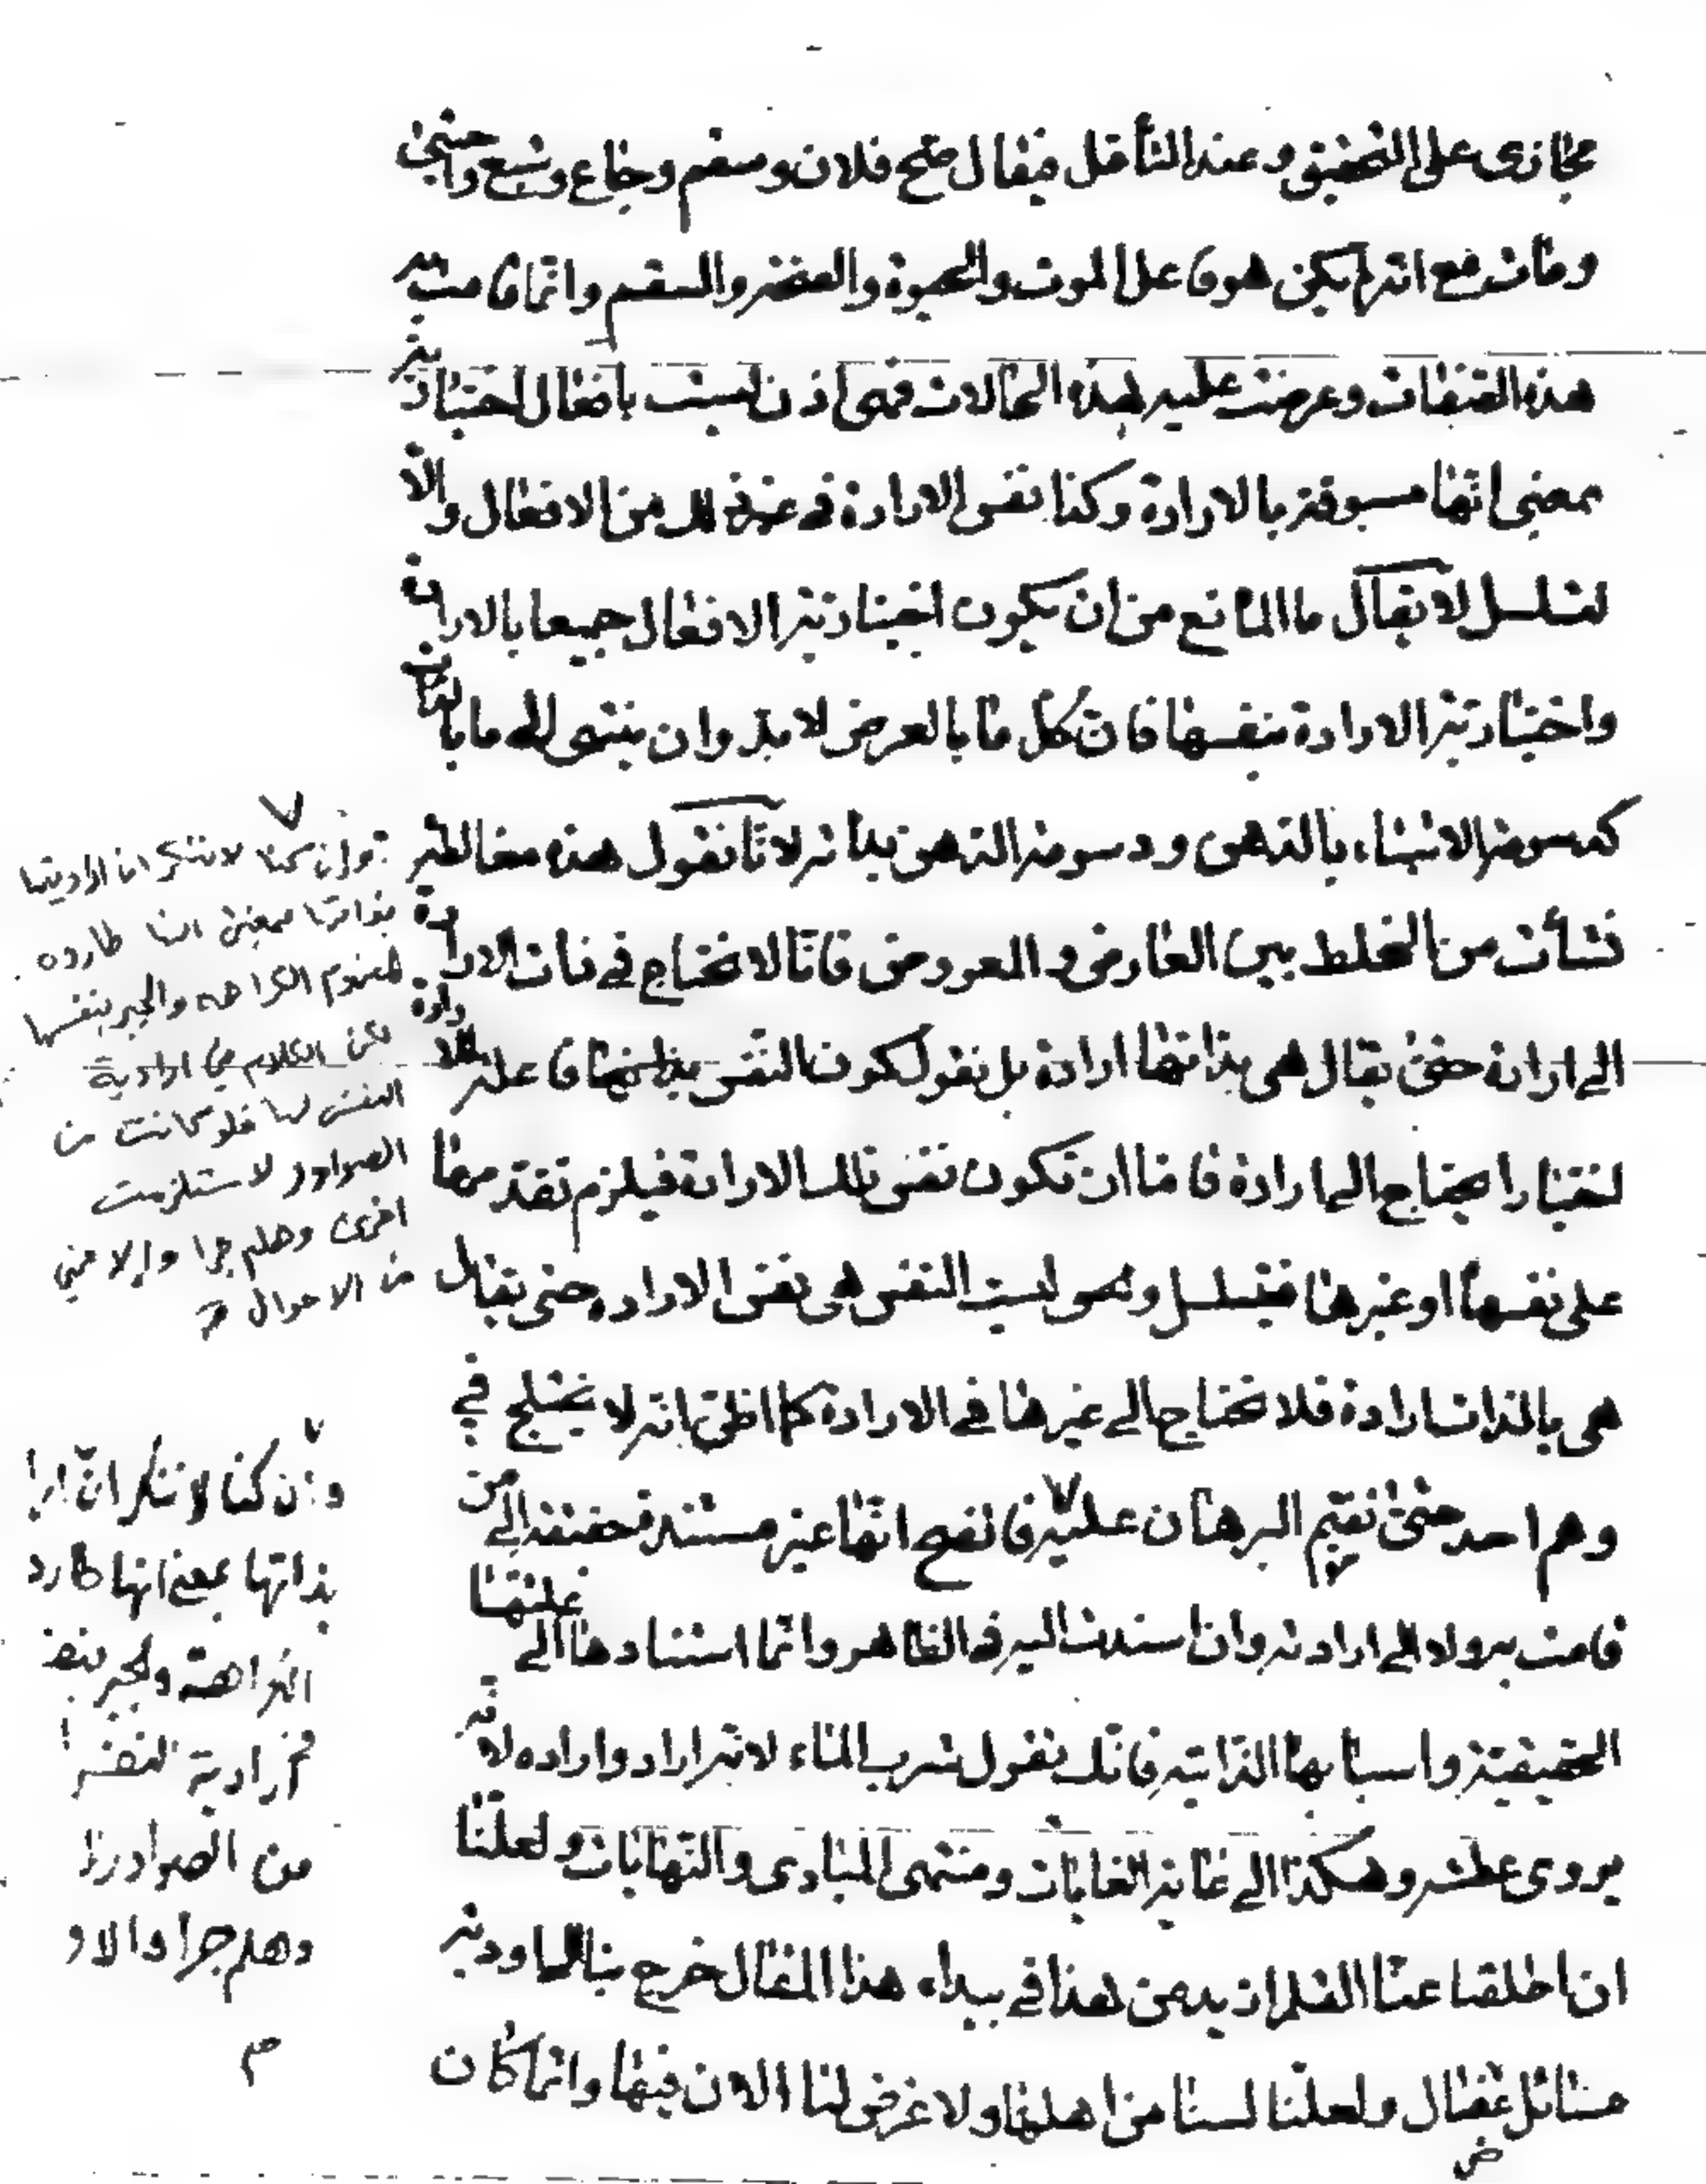 مجازى على التحقيق و عند التأمل فيقال صح فلان و سقم و جاع و شبع و احتى
و مات مع انه لم يكن هو فاعل الموت و الحيوة و الصحة و السقم و انما قامت به
هذه الصفات و عرضت عليه هذه الحالات فهى اذن ليست بافعال اختيارية
بمعنى انها مسبوقة بالارادة و كذا نفس الارادة فى غير ذلك من الافعال و الا
لتسلسل لا يقال ما المانع من ان يكون اختيارية الافعال جميعا بالارادة
و اختيارية الارادة بنفسها فان كل ما بالعرض لا بد و ان ينتهى الى ما بالذات
كدسومة الاشياء بالدهن و دسومة الدهن بذاته لانا نقول هذه مغالطة
نشأت من الخلط بين العارض و المعروض فانا لا نحتاج فى ذات الارادة
الى ارادة حتى يقال هى بذاتها ارادة بل نقول كون النفس بذاتها فاعلة للارادة
اختيارا يحتاج الى ارادة فاما ان تكون نفس تلك الارادة فيلزم تقدمها
على نفسها او غيرها فيتسلسل و هو ليست النفس هى نفس الارادة حتى يقال
هى بالذات ارادة فلا تحتاج الى غيرها فى الارادة كما اظن بانه لا يختلج فى
وهم احد حتى نقيم البرهان عليه فاتضح انها غير مستندة حقيقة الى من
قامت به ولا الى ارادته و ان اسندت اليه فى الظاهر و انما استنادها الى علتها
الحقيقية و اسبابها الذاتية فانك تقول شرب الماء لانه اراد و اراده لانه
يروى عطشه و هكذا الى غاية الغايات و منتهى المبادى و النهايات و لعلنا
ان اطلقنا عنا القلم ازيد من هذا فى بيداء هذا المقال خرج بنا الى اودية
مسائل عضال و لعلنا لسنا من اهلها و لا غرض لنا الان فيها و انما كان
و ان كنا لا ننكر ان اراديتها
بذاتها بمعنى انها طارده
لمفهوم الكراهه والجبر بنفسها
لكن الكلام في ارادية
النفس لها فلو كانت من
الصوادر لاستلزمت
اخرى وهلم جرا وإلا فهي
من الاحوال
و ان كنا لا ننكر ان ارا
بذاتها بمعنى انها طارد
الكراهة والجبر بنفـ
فى ارادية النفس
من الصوادر لا
وهلم جرا والا و
م